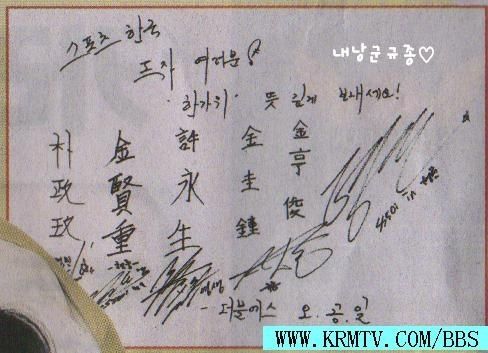 스포츠 한국
내낭군규종♡
독자 여러분!
한가위 뜻 깊게 보내세요!
朴政玟
金賢重
許永生
金圭鍾
金亨俊
- 더블에스 오.공.일
WWW.KRMTV.COM/BBS